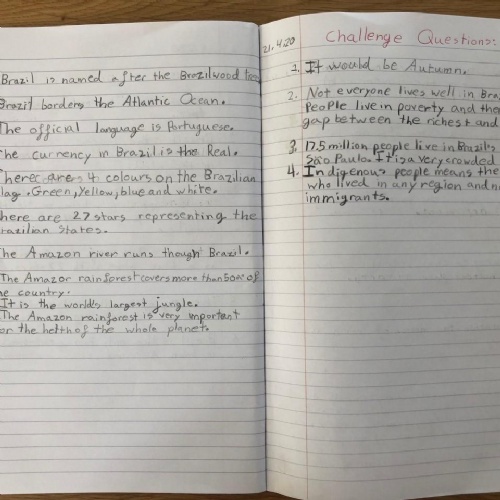 Brazil is named after the Brazilwood trees
Brazil borders the Atlantic Ocean.
The official language is Portuguese.
The currency in Brazil is the Real.
There are 4 colours on the Brazilian
flag. Green, Yellow, blue and white.
There are 27 stars representing the
Brazilian States.
The Amazon river runs though Brazil.
The Amazon rainforest covers more than 50% of
the country.
It is the world's largest jungle.
The Amazon rainforest is very important
for the helth of the whole planet.
21.4.20
Challenge Questions:
1. It would be Autumn.
2. Not everyone lives well in
People live in poverty and
gap between the richest and
3. 17.5 million people live in Brazil's
São Paulo. It is a very crowded
4. Indigenous people means the
who lived in any region and
immigrants.